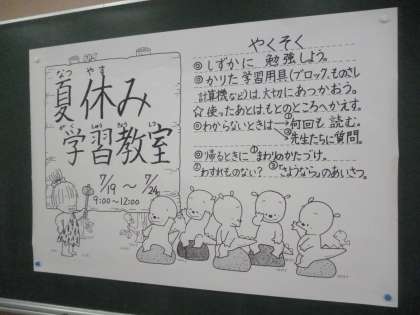 なつ やす
夏休み
がくしゅうきょうしつ
学習教室
7/19 〜 7/24
9:00〜12:00
やくそく
◎しずかに 勉強しよう。
◎かりた学習用具(ブロック、ものさし
計算機など)は、大切にあつかおう。
☆使ったあとは、もとのところへかえす。
◎わからないときは→①何回も読む。
→②先生たちに質問。
◎帰るときに ①まわりのかたづけ。
②わすれものない? ③「さようなら。」のあいさつ。